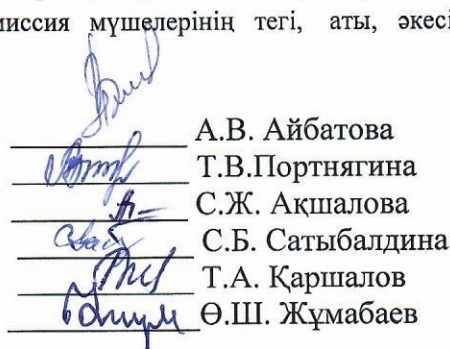 миссия мүшелерінің тегі, аты, әкесі
А.В. Айбатова
Т.В.Портнягина
С.Ж. Ақшалова
С.Б. Сатыбалдина
Т.А. Қаршалов
Ө.Ш. Жұмабаев